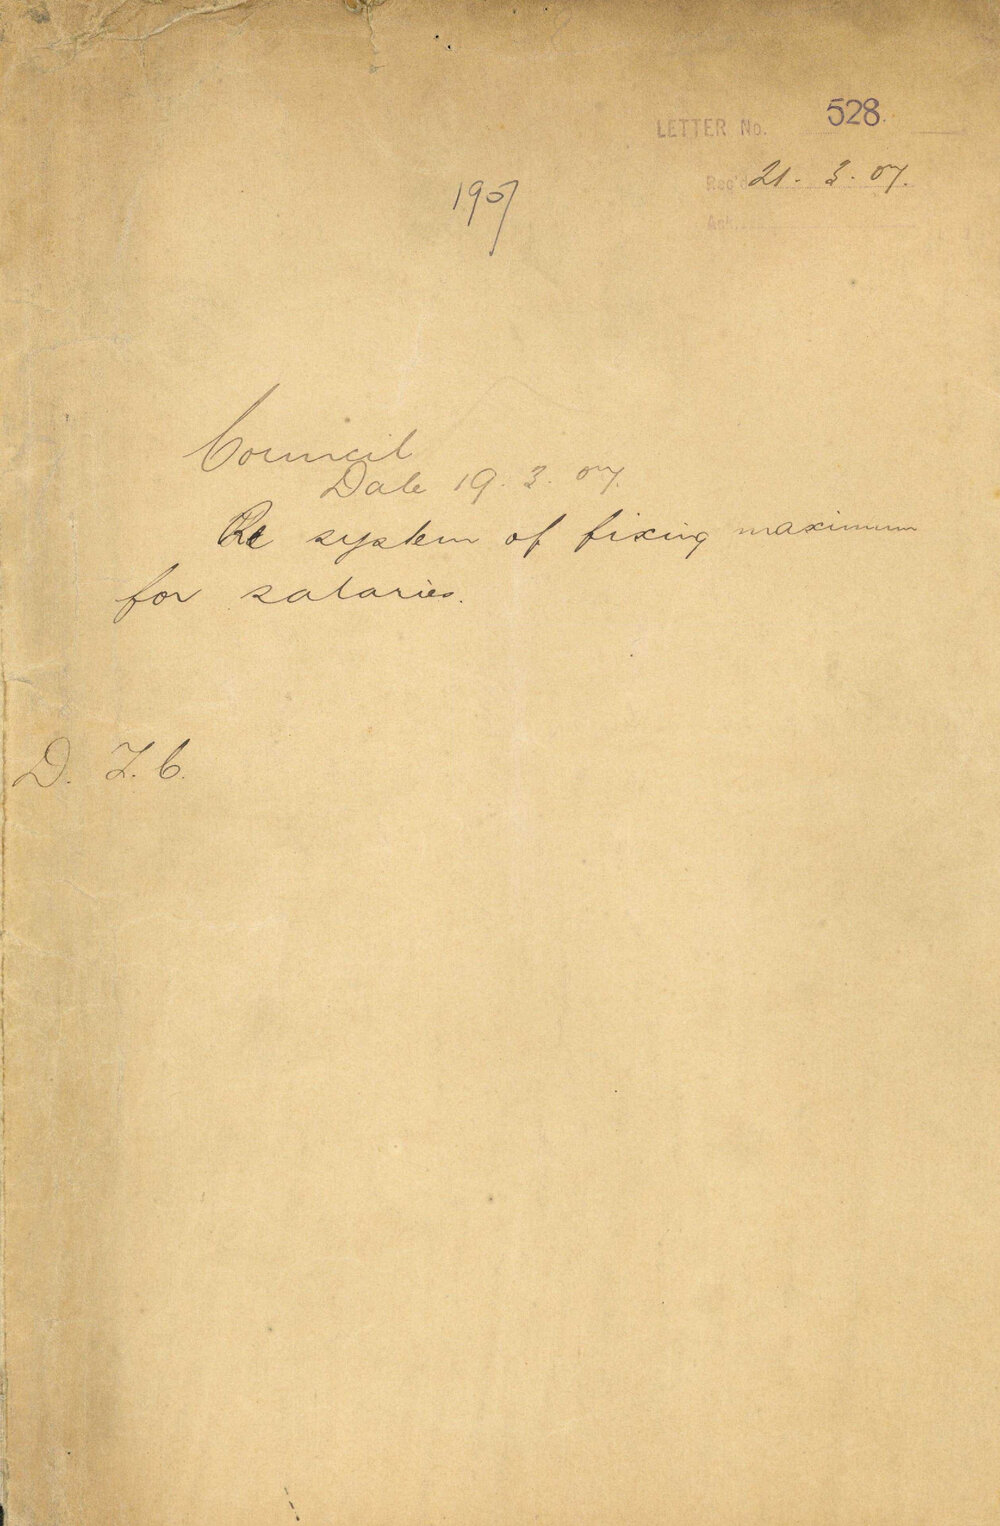 LETTER No. 528.
Rec'd 21. 3. 07.
Ack.
1907
Council
Date 19. 3. 07.
Re system of fixing maximum
for salaries.
D. T. C.